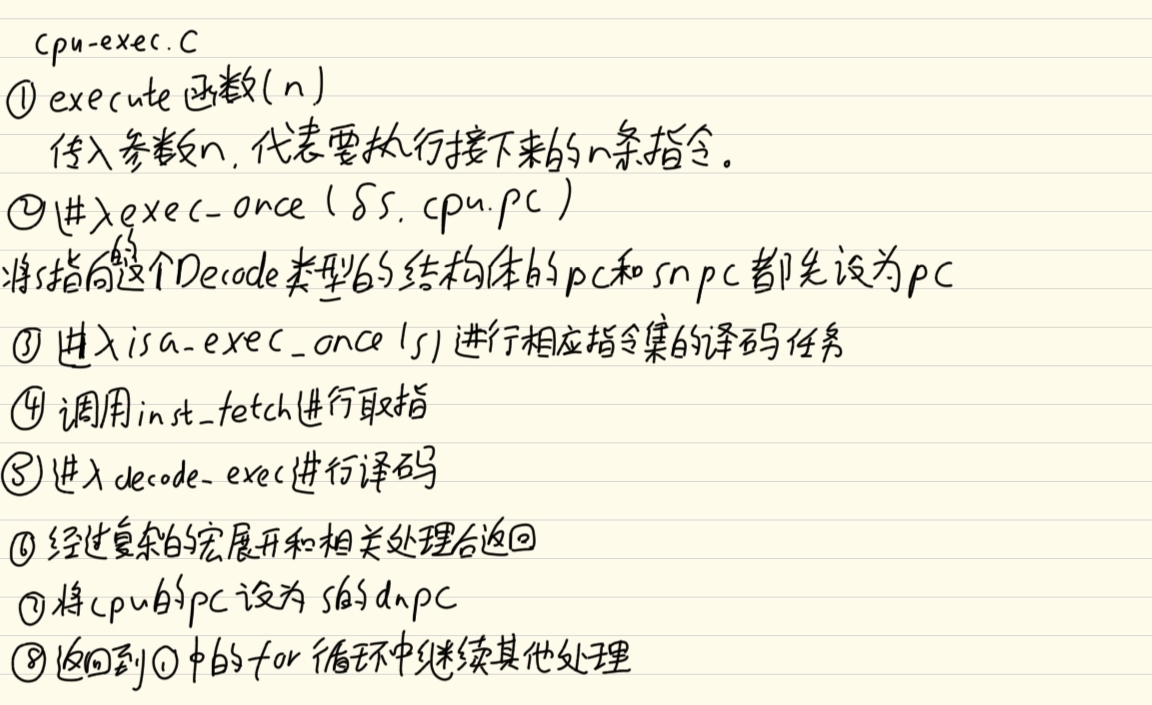 cpu-exec.c
① execute函数(n)
传入参数n，代表要执行接下来的n条指令。
②进入exec_once(&s, cpu.pc)
将s指向的这个Decode类型的结构体的pc和snpc都先设为pc
③ 进入isa_exec_once(s)进行相应指令集的译码任务
④ 调用inst_fetch进行取指
⑤进入decode_exec进行译码
⑥ 经过复杂的宏展开和相关处理后返回
⑦将cpu的pc设为s的dnpc
⑧返回到①中的for循环中继续其他处理